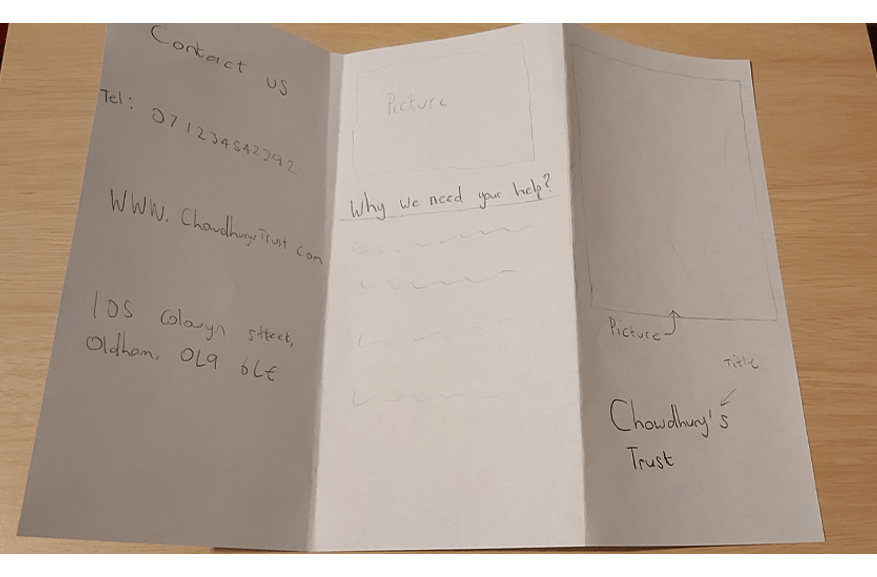 Contact us
Tel: 071234542292
WWW. ChowdhurysTrust com
105 Colwyn street,
Oldham, OL9 6LE
Picture
Why we need your help?
Picture
Title
Chowdhury's
Trust